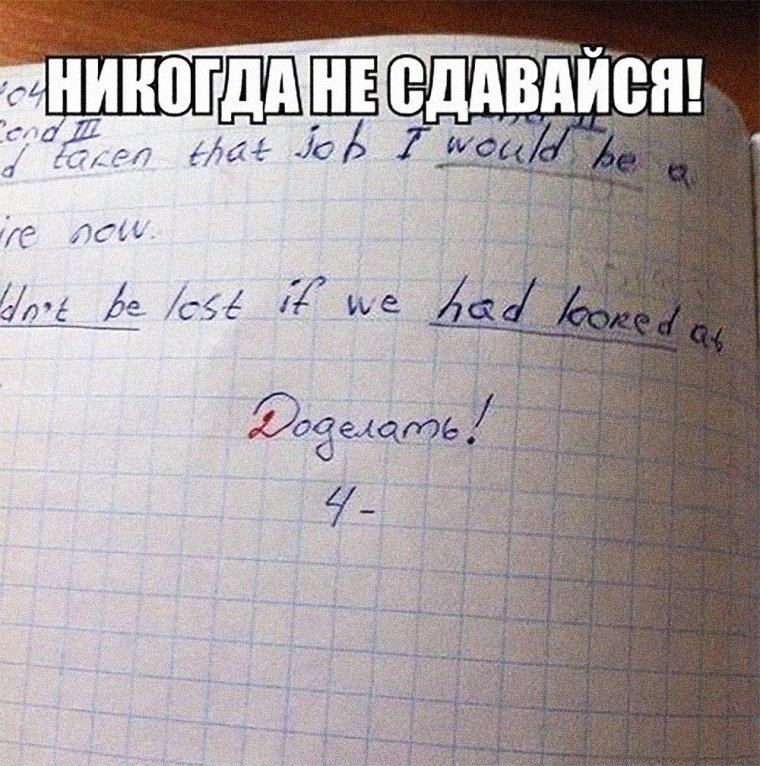 НИКОГДА НЕ СДАВАЙСЯ!
cond III
taken that job I would be a
ire now.
ldn't be lost if we had looked at
Доделать!
4-